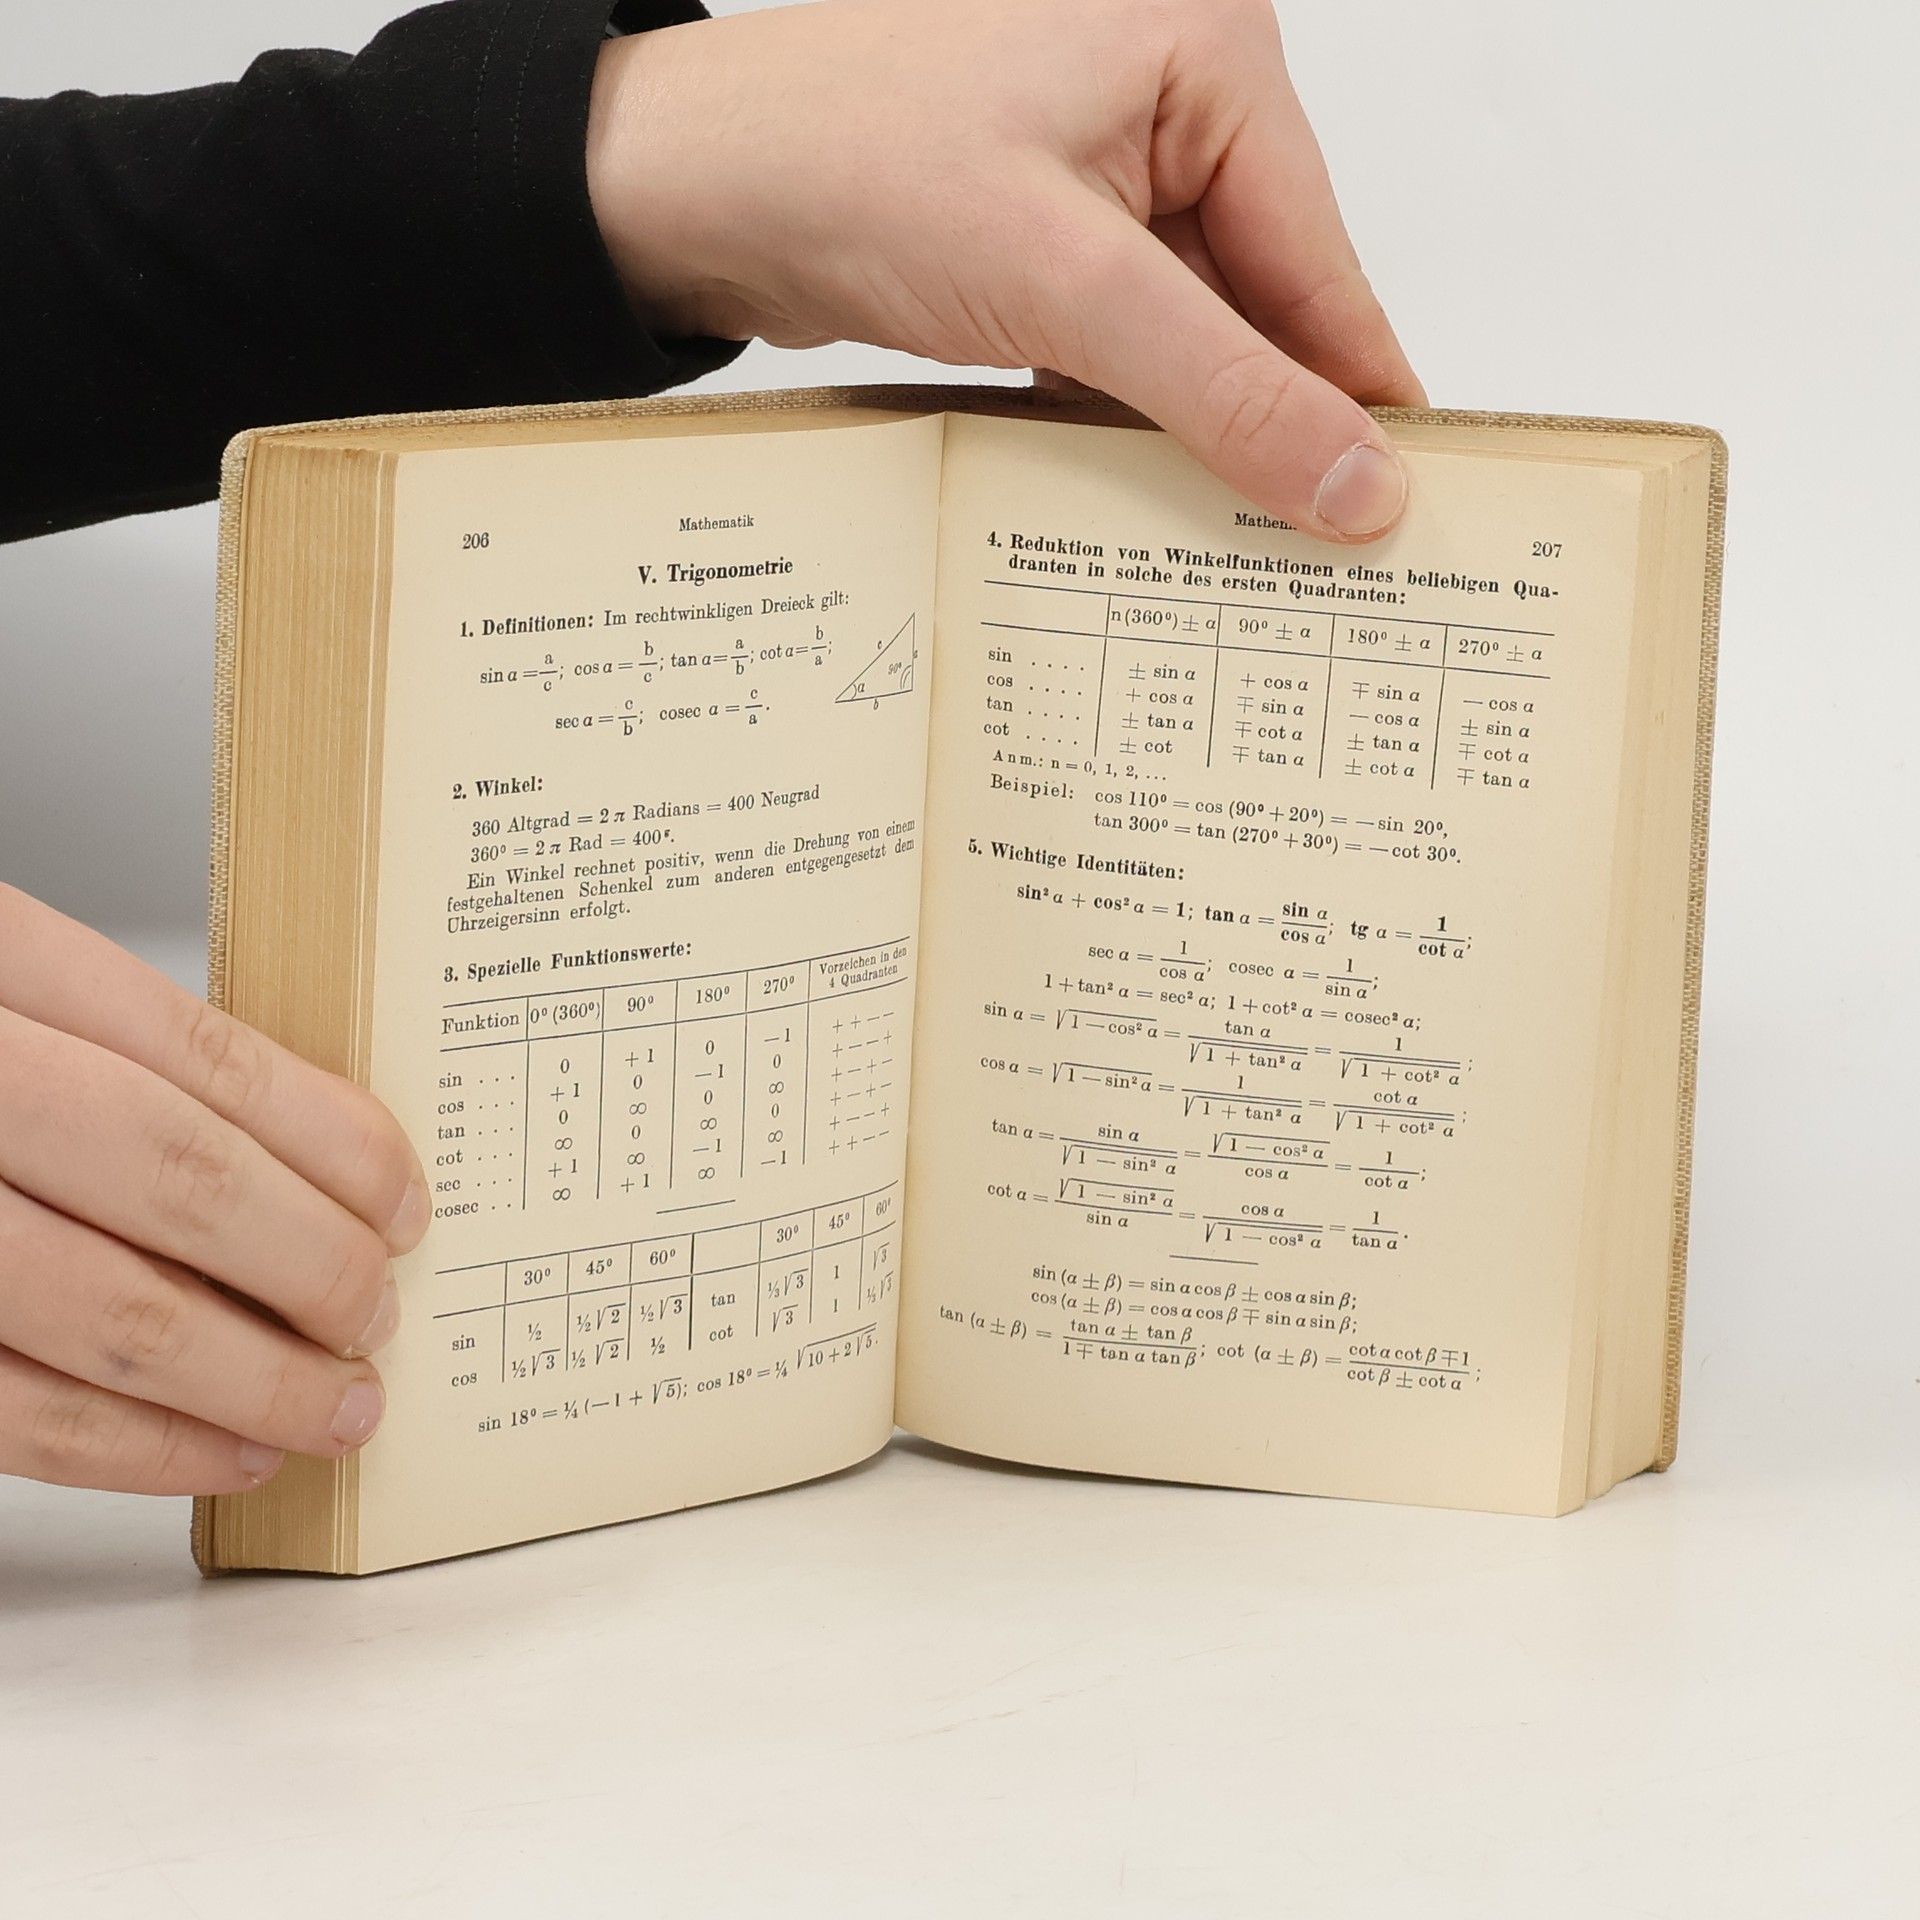 206
Mathematik
V. Trigonometrie
1. Definitionen: Im rechtwinkligen Dreieck gilt:
sin α = a/c; cos α = b/c; tan α = a/b; cot α = b/a;
sec α = c/b; cosec α = c/a.
c a 90° α b
2. Winkel:
360 Altgrad = 2 π Radians = 400 Neugrad
360° = 2 π Rad = 400ᵍ.
Ein Winkel rechnet positiv, wenn die Drehung von einem
festgehaltenen Schenkel zum anderen entgegengesetzt dem
Uhrzeigersinn erfolgt.
3. Spezielle Funktionswerte:
Funktion 0° (360°) 90° 180° 270° Vorzeichen in den
4 Quadranten
sin . . . 0 + 1 0 — 1 + + — —
cos . . . + 1 0 — 1 0 + — — +
tan . . . 0 ∞ 0 ∞ + — + —
cot . . . ∞ 0 ∞ 0 + — + —
sec . . . + 1 ∞ — 1 ∞ + — — +
cosec . . ∞ + 1 ∞ — 1 + + — —
30° 45° 60° 30° 45° 60°
sin ½ ½ √2 ½ √3 tan ⅓ √3 1 √3
cos ½ √3 ½ √2 ½ cot √3 1 ⅓ √3
sin 18° = ¼ (— 1 + √5); cos 18° = ¼ √(10 + 2 √5).
207
4. Reduktion von Winkelfunktionen eines beliebigen Qua-
dranten in solche des ersten Quadranten:
n (360°) ± α 90° ± α 180° ± α 270° ± α
sin . . . . ± sin α + cos α ∓ sin α — cos α
cos . . . . + cos α ∓ sin α — cos α ± sin α
tan . . . . ± tan α ∓ cot α ± tan α ∓ cot α
cot . . . . ± cot ∓ tan α ± cot α ∓ tan α
Anm.: n = 0, 1, 2, ...
Beispiel: cos 110° = cos (90° + 20°) = — sin 20°,
tan 300° = tan (270° + 30°) = — cot 30°.
5. Wichtige Identitäten:
sin² α + cos² α = 1; tan α = sin α/cos α; tg α = 1/cot α;
sec α = 1/cos α; cosec α = 1/sin α;
1 + tan² α = sec² α; 1 + cot² α = cosec² α;
sin α = √(1 — cos² α) = tan α/√(1 + tan² α) = 1/√(1 + cot² α);
cos α = √(1 — sin² α) = 1/√(1 + tan² α) = cot α/√(1 + cot² α);
tan α = sin α/√(1 — sin² α) = √(1 — cos² α)/cos α = 1/cot α;
cot α = √(1 — sin² α)/sin α = cos α/√(1 — cos² α) = 1/tan α.
sin (α ± β) = sin α cos β ± cos α sin β;
cos (α ± β) = cos α cos β ∓ sin α sin β;
tan (α ± β) = (tan α ± tan β)/(1 ∓ tan α tan β); cot (α ± β) = (cot α cot β ∓ 1)/(cot β ± cot α);